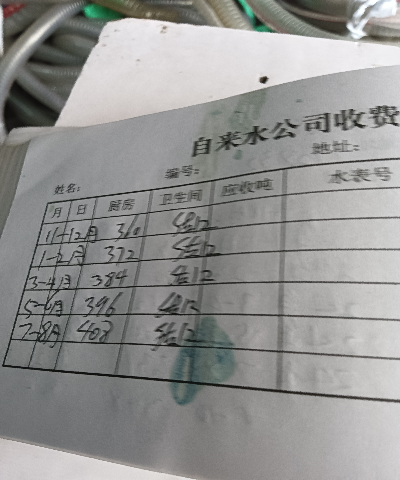 自来水公司收费
编号： 地址：
姓名：
月 日 厨房 卫生间 应收吨 水表号
11-12月 360 12
1-2月 372 12
3-4月 384 12
5-6月 396 12
7-8月 408 12